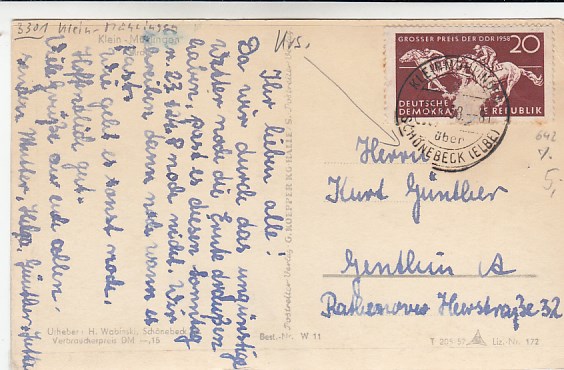 3301 Klein-Mühlingen
Klein-Mühlingen
Ihr lieben alle!
Da wir durch das ungünstige
Wetter noch die Ernte draußen
haben, passt es diesen Sonntag
den 23. noch nicht. Wir
schreiben dann noch wann es
passt.
Wie geht es sonst noch,
Hoffentlich gut.
Viele Grüße an euch allen
senden Mutter, Helga, Günther
Urheber: H. Wabirski, Schönebeck
Verbraucherpreis DM -,15
Best.-Nr. W 11
GROSSER PREIS DER DDR 1958
20
DEUTSCHE
DEMOKRATISCHE REPUBLIK
KLEINMÜHLINGEN
über
SCHÖNEBECK (ELBE)
642
5,
Herrn
Kurt Günther
Genthin
Rathenower Heerstraße 32
Liz.-Nr. 172